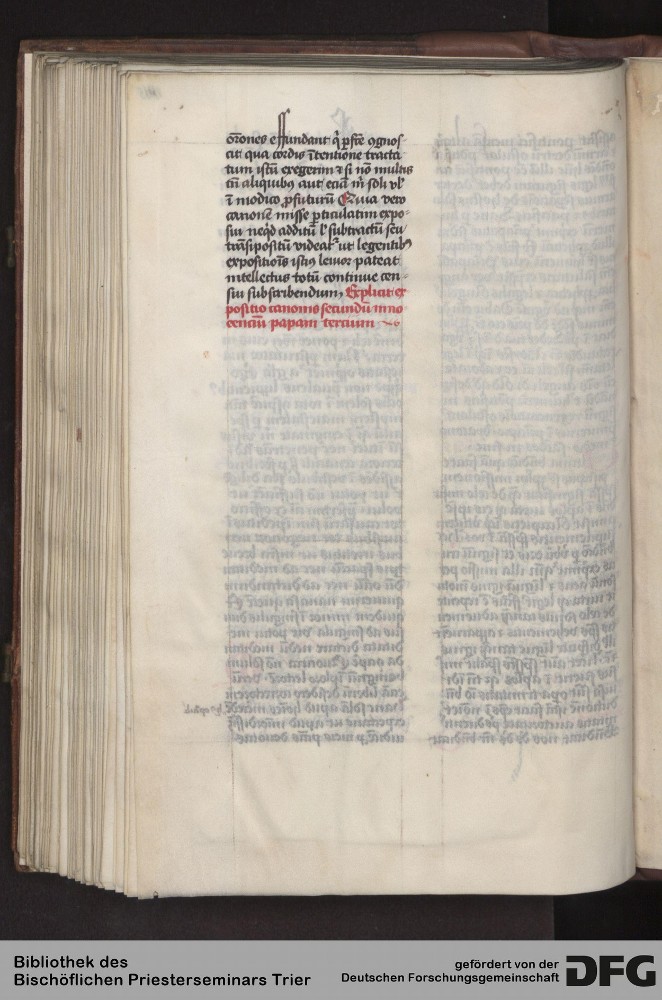 or̄ones effundant q̄ p̄fc̄e ꝯgnos-
cit qua cordis ītentione tracta
tum istū exegerim ⁊ si nō multis
tn̄ aliquibꝰ aut eciā m̄ soli vl̓
ī modico ꝓfuturū Quia vero
canonē misse ꝑticulatim expo-
sui neq̄d additū l̓ subtractū seu
trāsspositū videat᷑ ut legentibꝰ
expositiōis istiꝰ leuior pateat
intellectus totū continue cen-
sui subscribendum, Explicit ex
positio canonis secundū inno
cenciū papam tercium
Bibliothek des
Bischöflichen Priesterseminars Trier
gefördert von der
Deutschen Forschungsgemeinschaft
DFG